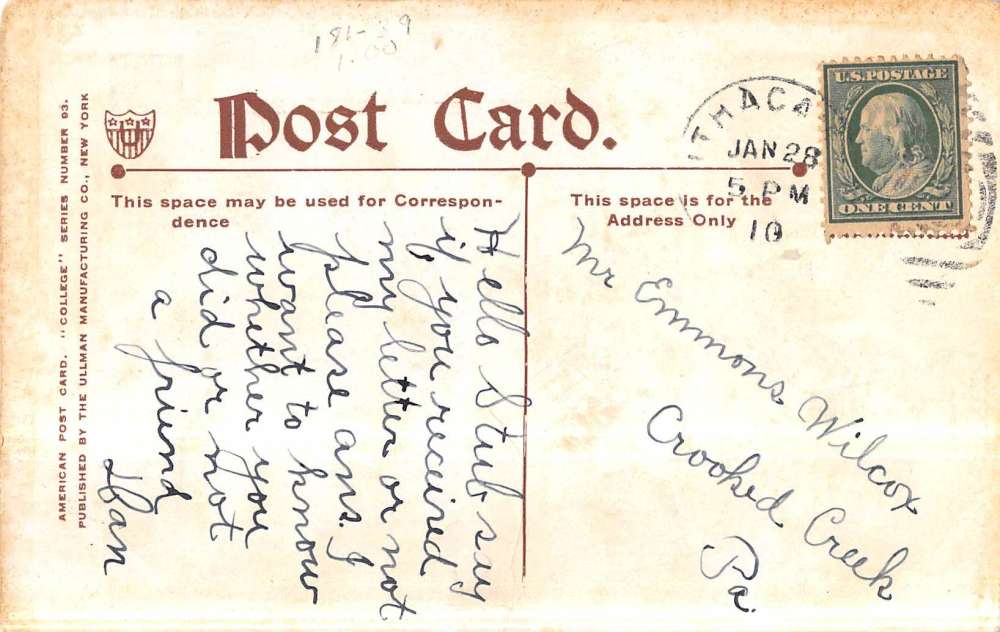 181-39
1.00
Post Card.
ITHACA
JAN 28
5 PM
10
U.S. POSTAGE
ONE CENT
AMERICAN POST CARD. "COLLEGE" SERIES NUMBER 93.
PUBLISHED BY THE ULLMAN MANUFACTURING CO., NEW YORK
This space may be used for Correspon-
dence
This space is for the
Address Only
Hello Stub say
if you received
my letter or not
please ans. I
want to know
whether you
did or not
a friend
Dan
Mr Emmons Wilcox
Crooked Creek
Pa.